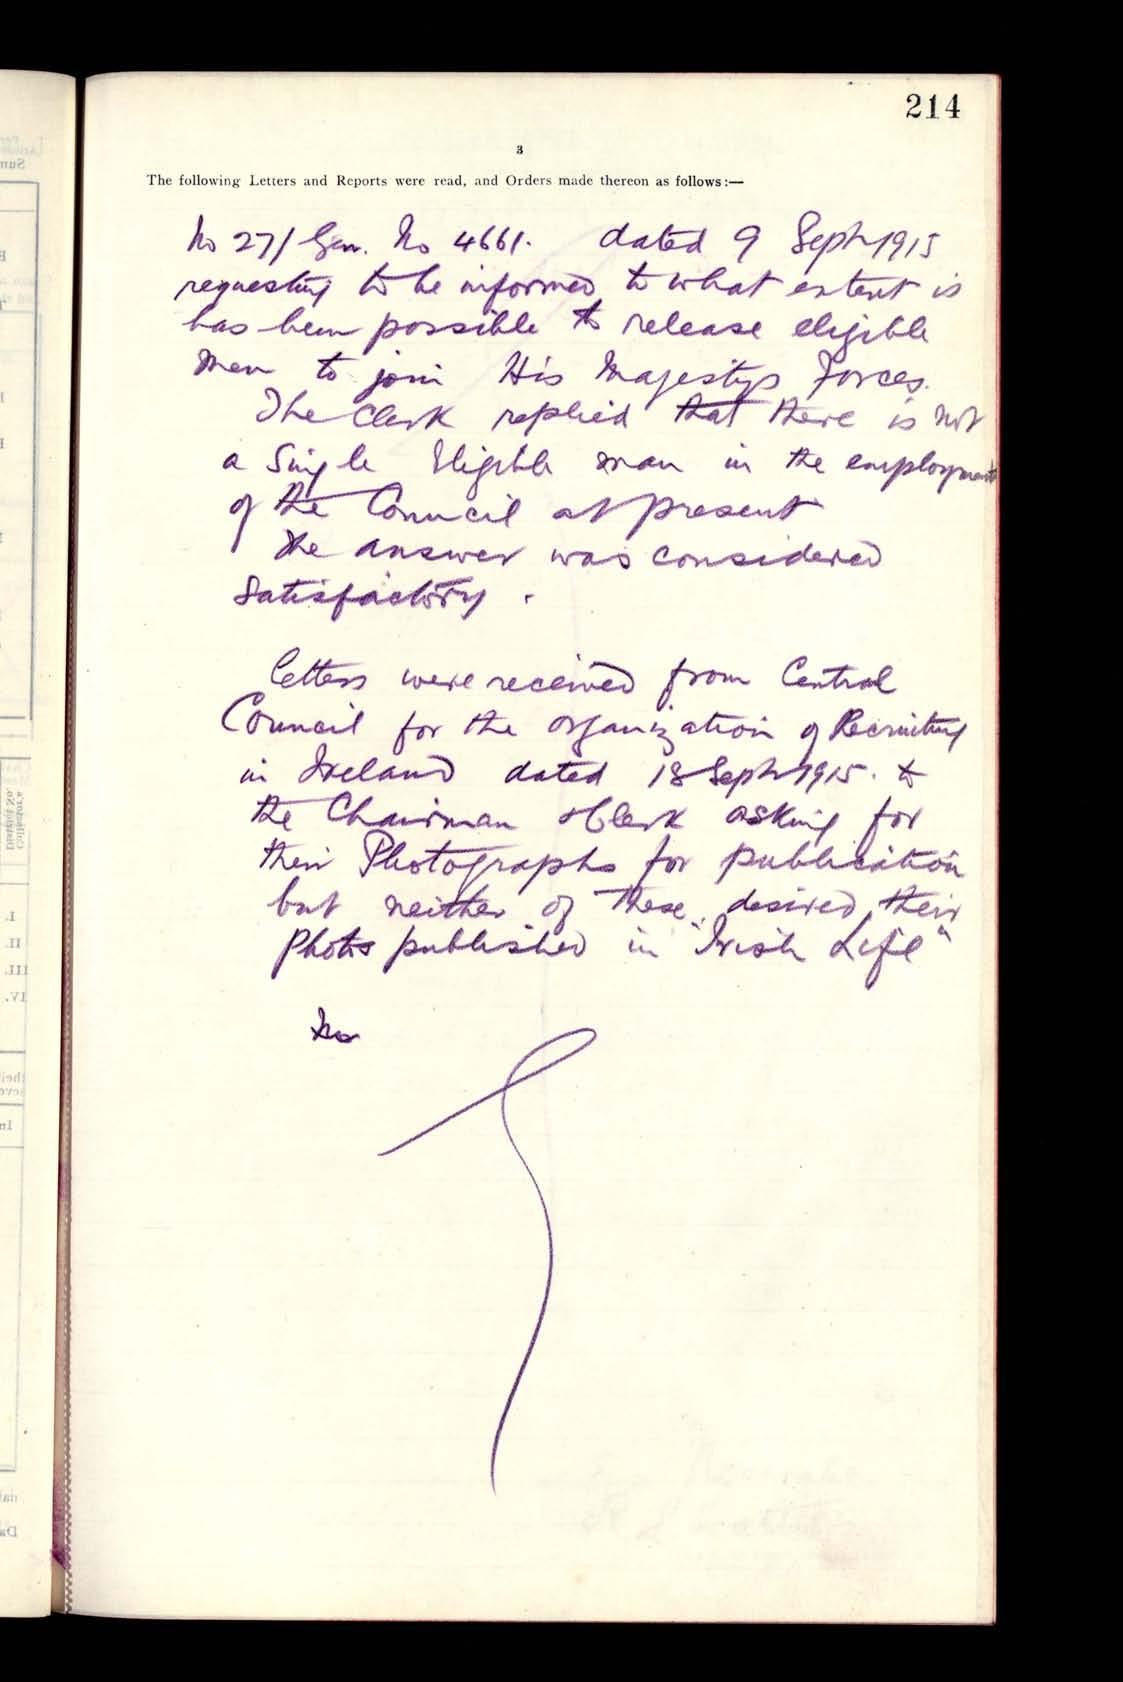 214
3
The following Letters and Reports were read, and Orders made thereon as follows:—
No 27/Gen. No 4661. dated 9 Sept 1915
requesting to be informed to what extent is
has been possible to release eligible
men to join His Majestys Forces.
The Clerk replied that there is not
a Single Eligible man in the employment
of the Council at present
The answer was considered
Satisfactory.
Letters were received from Central
Council for the organization of Recruiting
in Ireland dated 18 Sept 1915. to
the Chairman & Clerk asking for
their Photographs for publication
but neither of these desired their
Photos published in "Irish Life"
No